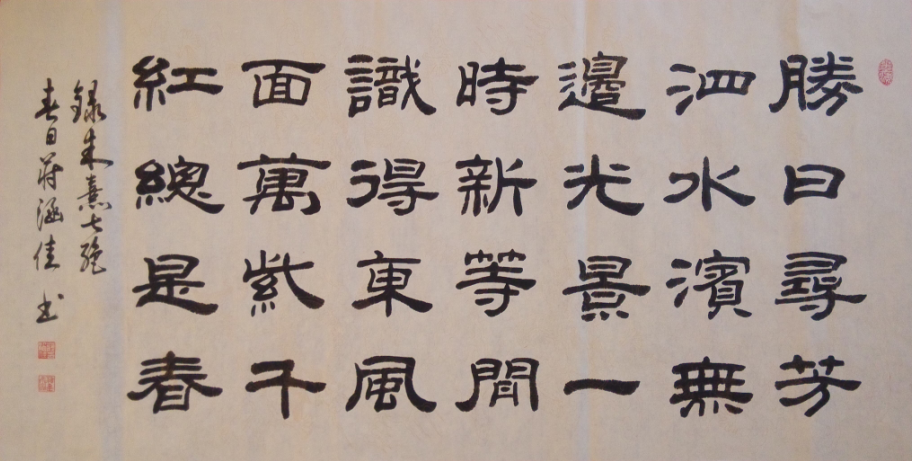 勝日尋芳
泗水濱無
邊光景一
時新等閒
識得東風
面萬紫千
紅總是春
録朱熹七絶
春日蔣涵佳書